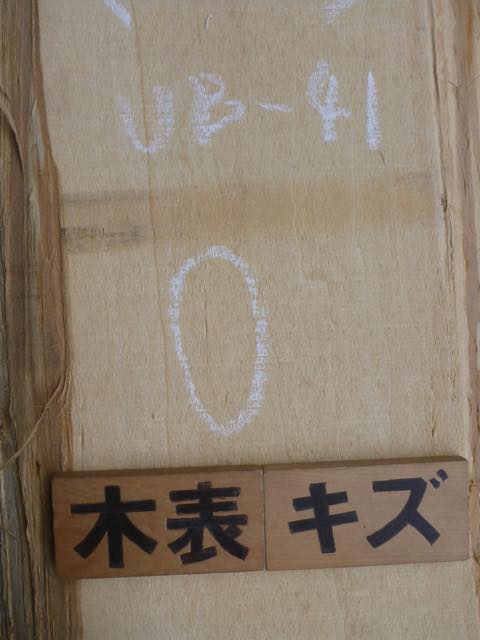 UB-41
木表 キズ